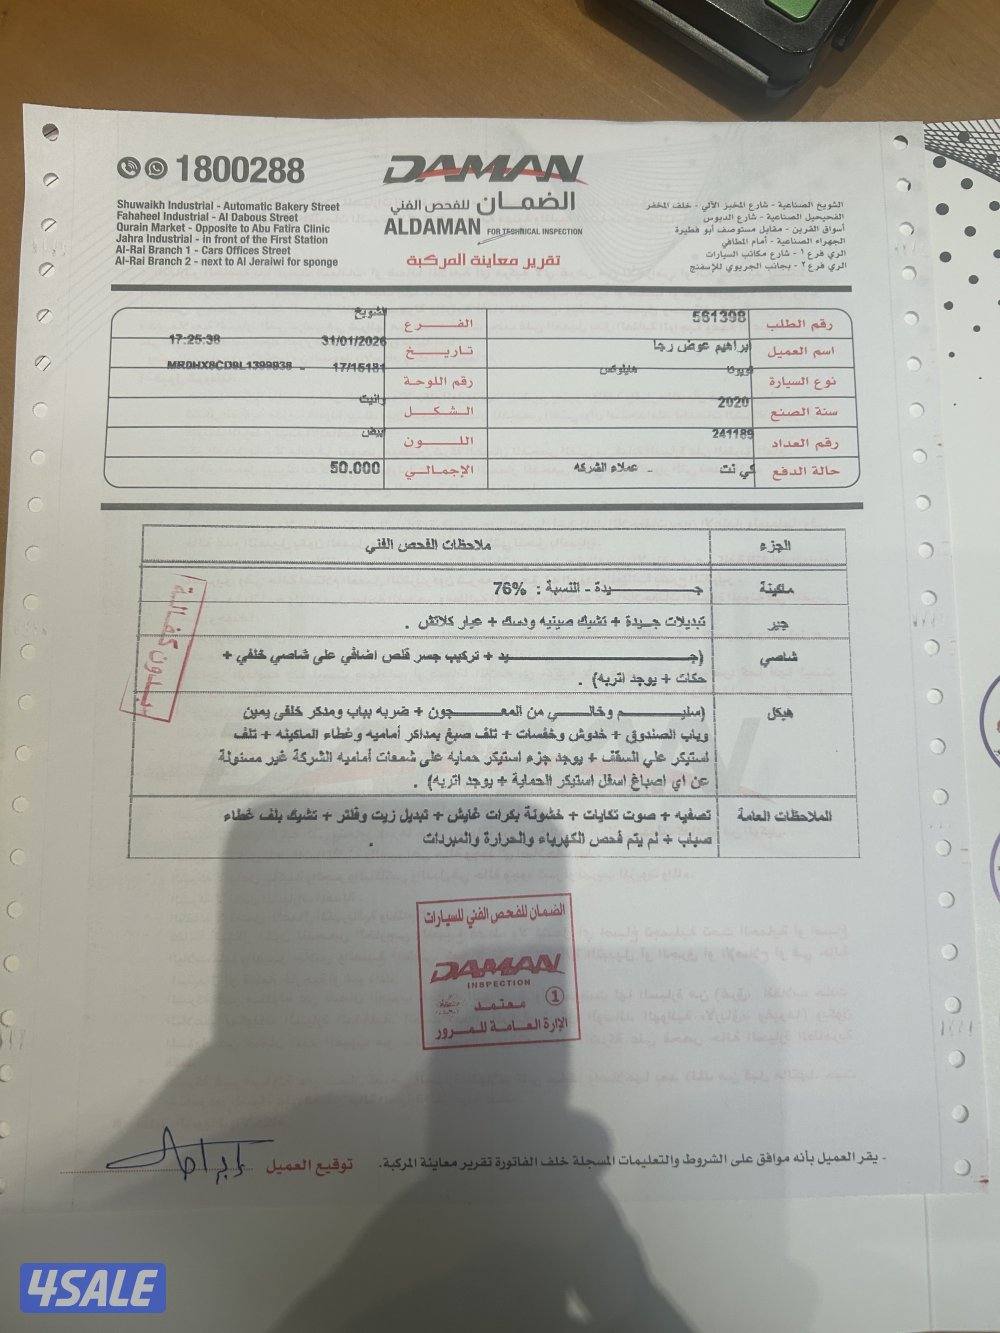 1800288
DAMAN
الضمان للفحص الفني
ALDAMAN FOR TECHNICAL INSPECTION
تقرير معاينة المركبة
Shuwaikh Industrial - Automatic Bakery Street
Fahaheel Industrial - Al Dabous Street
Qurain Market - Opposite to Abu Fatira Clinic
Jahra Industrial - in front of the First Station
Al-Rai Branch 1 - Cars Offices Street
Al-Rai Branch 2 - next to Al Jeraiwi for sponge
الشويخ الصناعية - شارع المخبز الآلي - خلف المخفر
الفحيحيل الصناعية - شارع الدبوس
أسواق القرين - مقابل مستوصف أبو فطيرة
الجهراء الصناعية - أمام المطافي
الري فرع ١ - شارع مكاتب السيارات
الري فرع ٢ - بجانب الجريوي للإسفنج
رقم الطلب 561398 الفرع الشويخ
اسم العميل ابراهيم عوض رجا تاريخ 31/01/2026 17:25:38
نوع السيارة تويوتا هايلوكس رقم اللوحة 17/15181 - MR0HX8CD9L1399938
سنة الصنع 2020 الشكل وانيت
رقم العداد 241189 اللون ابيض
حالة الدفع كي نت - عملاء الشركه الإجمالي 50.000
الجزء ملاحظات الفحص الفني
ماكينة جيدة - النسبة : 76%
جير تبديلات جيدة + تشيك صينيه ودسك + عيار كلاتش .
شاصي (جيد + تركيب جسر قلص اضافي على شاصي خلفي +
حكات + يوجد اتربه) .
هيكل (سليم وخالي من المعجون + ضربه بباب ومدكر خلفى يمين
وباب الصندوق + خدوش وخفسات + تلف صبغ بمداكر أماميه وغطاء الماكينه + تلف
استيكر علي السقف + يوجد جزء استيكر حمايه على شمعات أماميه الشركة غير مسئولة
عن اي اصباغ اسفل استيكر الحماية + يوجد اتربه) .
الملاحظات العامة تصفيه + صوت تكايات + خشونة بكرات غايش + تبديل زيت وفلتر + تشيك بلف غطاء
صباب + لم يتم فحص الكهرباء والحرارة والمبردات .
بدون كفالة
الضمان للفحص الفني للسيارات
DAMAN
INSPECTION
معتمد 1
الإدارة العامة للمرور
- يقر العميل بأنه موافق على الشروط والتعليمات المسجلة خلف الفاتورة تقرير معاينة المركبة. توقيع العميل
4SALE